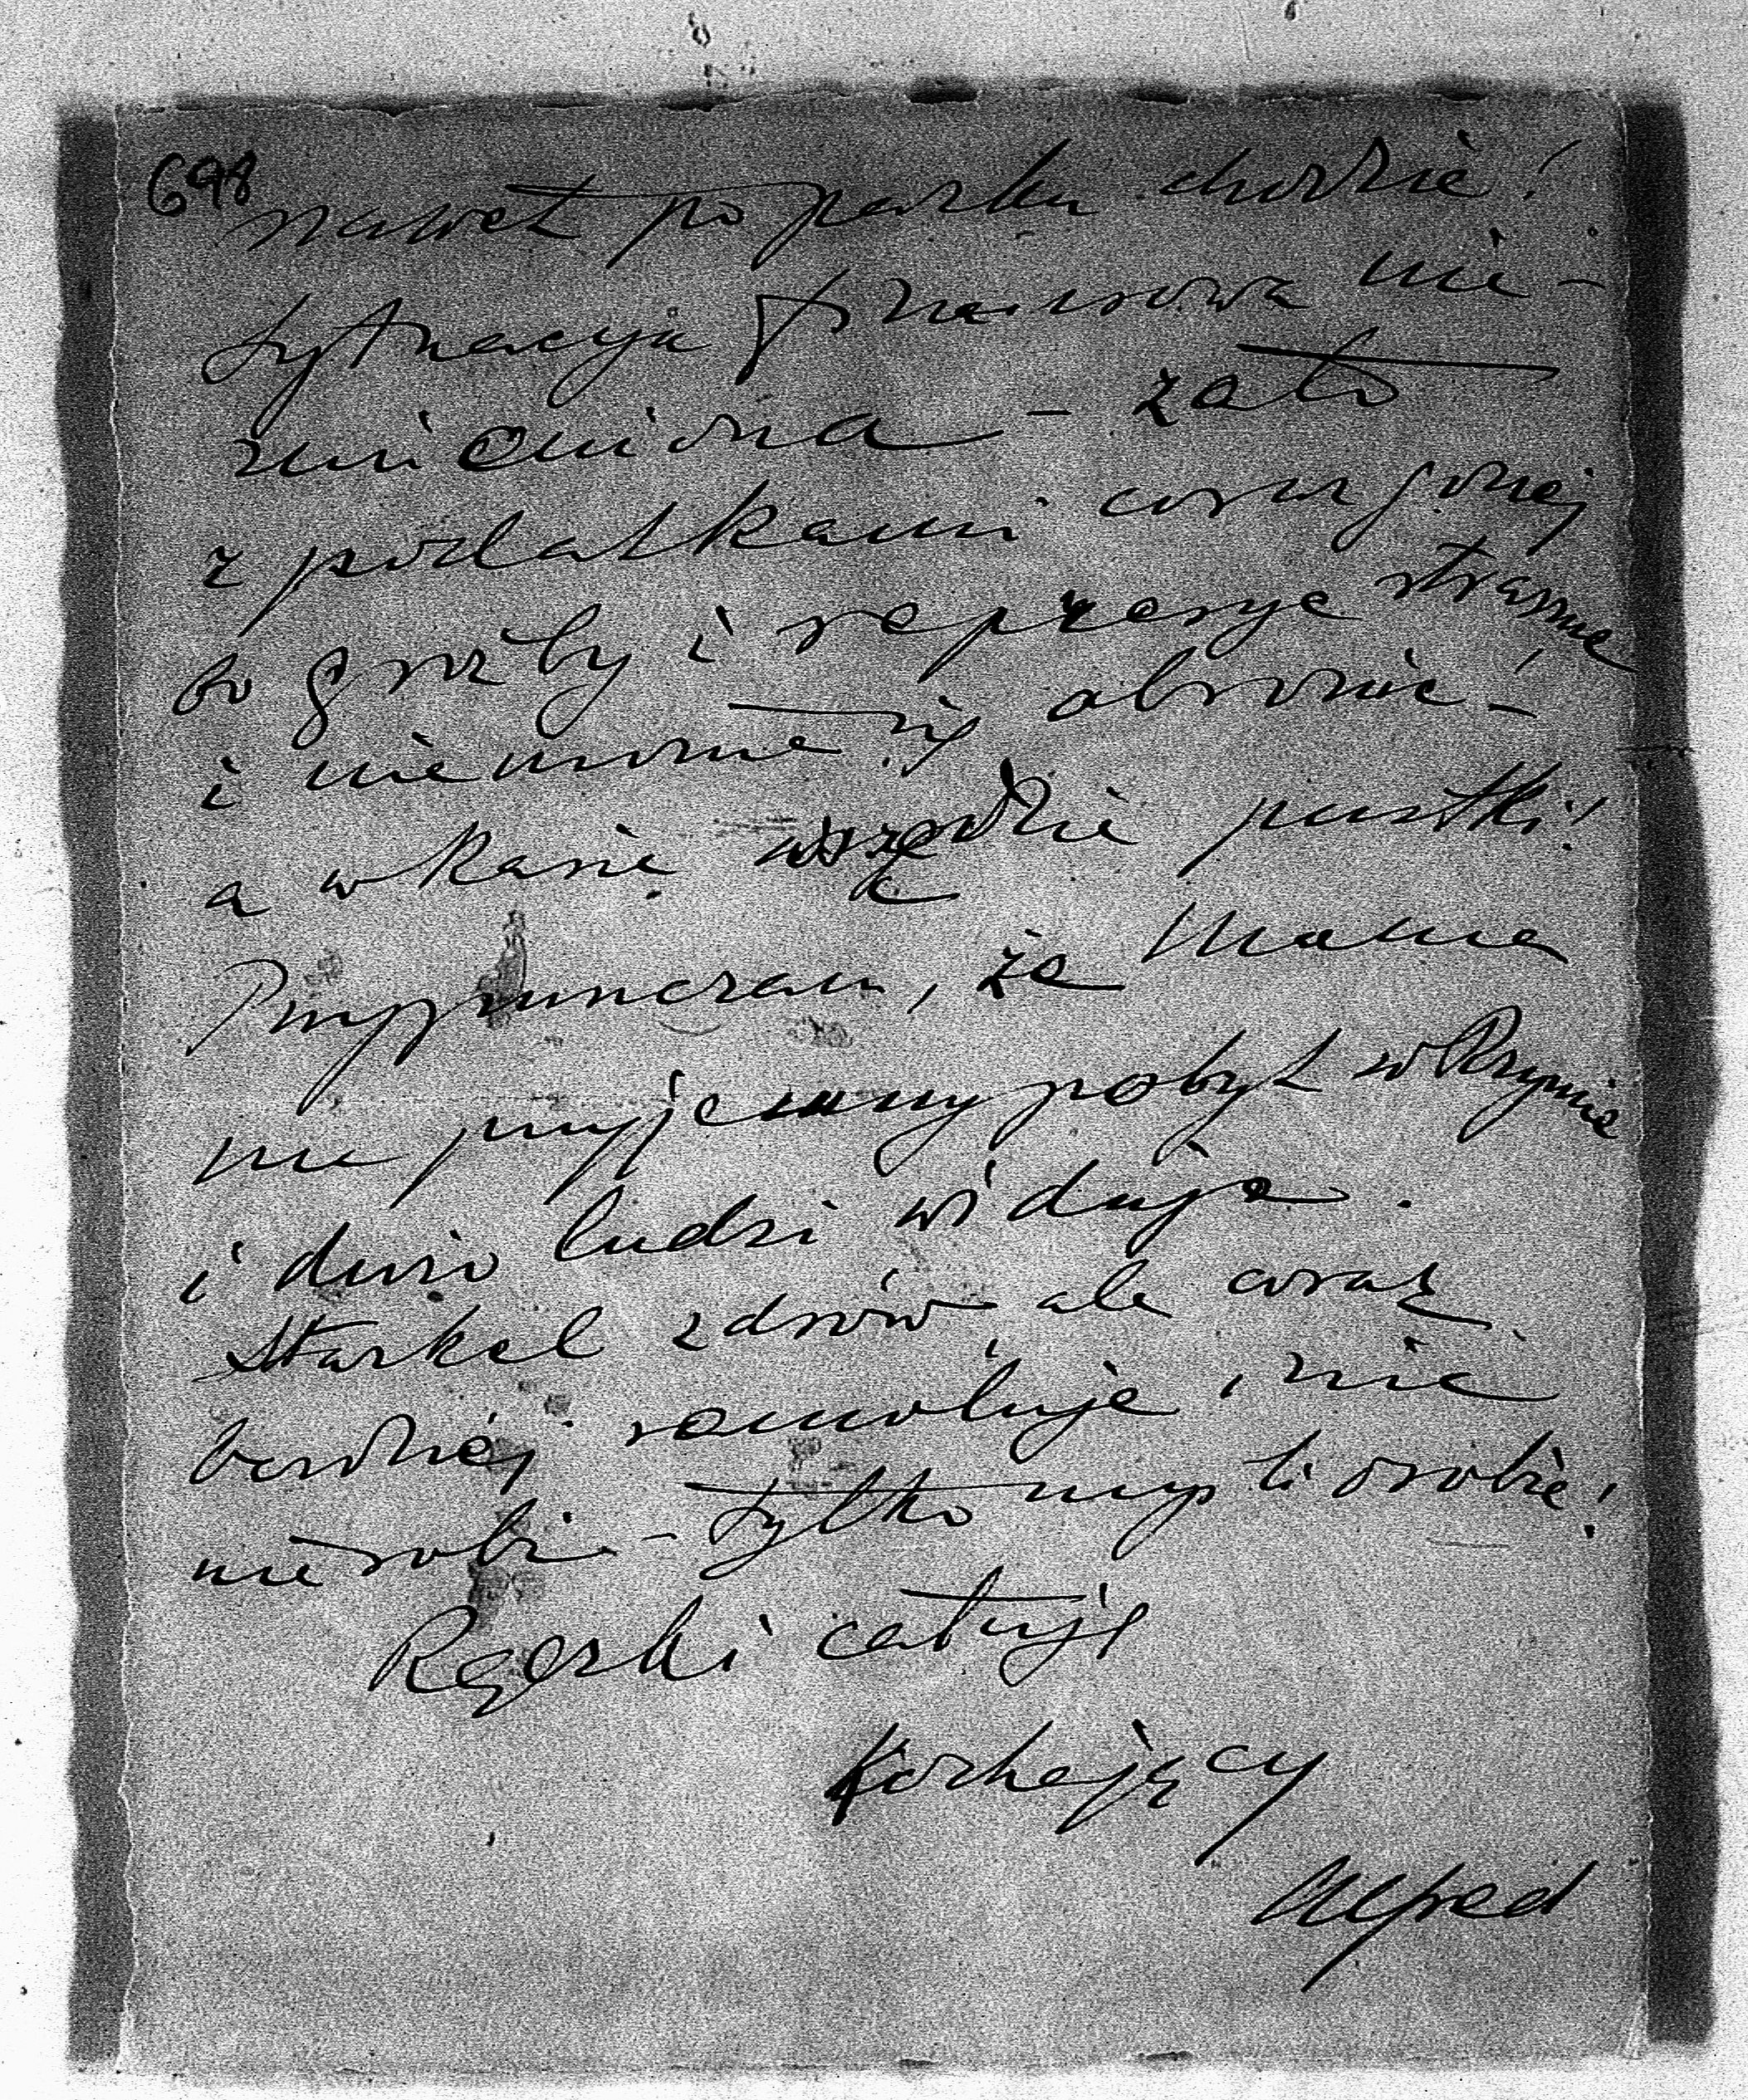 698
nawet po parku chodzić!
Sytuacya finansowa nie-
zmieniona – zato
z podatkami coraz gorzej
bo groźby i represye straszne
i niemożna się obronić! –
a w kasie wszędzie pustki!
Przypuszczam, że Mama
ma przyjemny pobyt w Rzymie
i dużo ludzi widuje.
Starkel zdrów, ale coraz
bardziej ramoluje, nic
nie robi – tylko myśli o sobie!
Rączki całuję
Kochający
Alfred